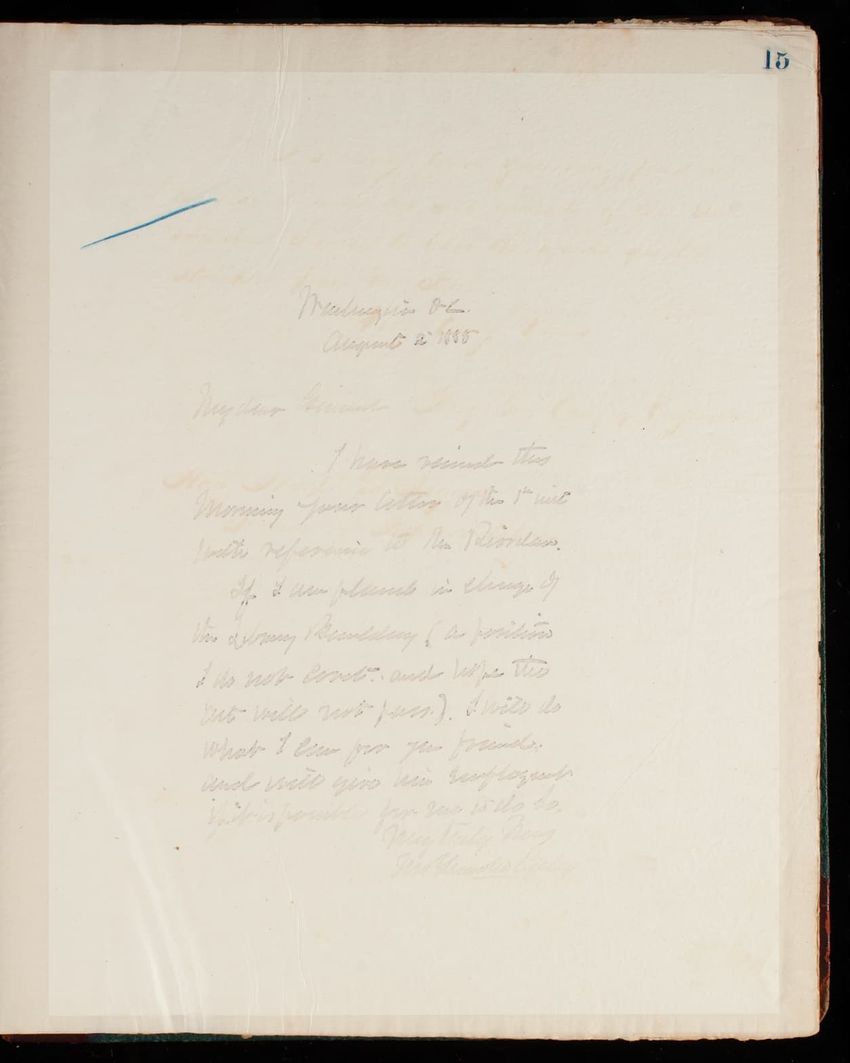 15
Washington D.C.
August 2 1888
My dear General
I have received this
Morning your letter of the 1st inst
with reference to Mr Riordan.
If I am placed in charge of
the Library Building (a position
I do not covet. and hope the
bill will not pass). I will do
what I can for your friend.
and will give him employment
if it is possible for me to do so.
Very truly Yours
Thos Lincoln Casey